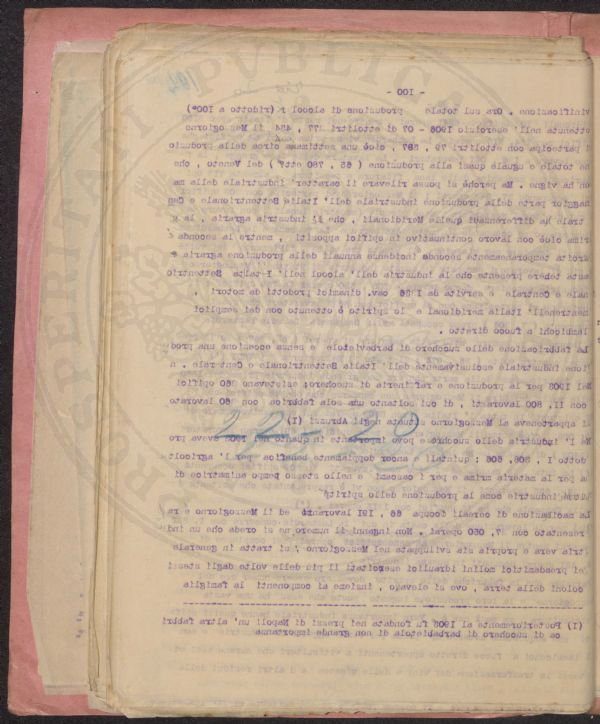 - 100 -
vinificazione . Ora sul totale produzione de alcool r (ridotto a 100°)
ottenuta nell' esercizio 1906 - 07 di ettolitri 177 , 484 il Mezzogiorno
partecipa con etolitri 79 , 887 , cioè una settimana circa della produzio
ne totale e uguale quasi alla produzione ( 65 , 780 ett° ) del Veneto , che
on ha vigne . Ma perchè si possa rilevare il caratter' industriale della ma
maggior parte della produzione industriale dell' Italia Settentrionale e Cen
trale da differenza di quelle Meridionali , che d' industria agraria , la p
rima cioè con lavoro continuativo in opifici appositi , mentre la seconda è
temporaneamente secondo incidenze annuali della produzione agraria e
tener presente che la industria dell' alcool nell' Italia Settentrio
nale e Centrale e servita da 1°86 cav. dinamici prodotti da motori ,
mentrenell' Italia meridionale lo spirito è ottenuto con dei semplici
lambicchi a fuoco diretto .
La fabbricazione dello zucchero di barbavietole e senza eccezione una prod
zione industriale esclusivamente dell' Italia Settentrionale e Centrale . n
Nel 1903 per la produzione e raffineria di zucchero; esistevano 360 opifici
con 11, 800 lavoranti , di cui soltanto una sola fabbrica con 60 lavorato
apparteneva al Mezzogiorno (situata negli Abruzzi (1)
Ne l' industria dello zucchero e povo importante in quanto nel 1908 aveva pro
dotto 1 , 806, 606 ; quintali e ancor doppiamente benefica per l' agricolt
a per la materia prima e per i cascami e nello stesso tempo animatrice di
altre industrie come la produzione dello spirito
La macinazione di cereali occupa 86 , 191 lavoranti ed il Mezzogiorno e ra
resentato con 17, 060 operai . Non inganni il numero ne si creda che un indu
tria vera e propria sia sviluppata nel Mezzogiorno , si tratta in generale
ei prosdamtici molini idraulici esercitati il più delle volte dagli stessi
coloni della terra , ove si elevano , insieme ai componenti la famiglia
(1) Posteriormente al 1903 fu fondata nei pressi di Napoli un' altra fabbri
ca di zucchero di barbabietola di non grande importanza
22-23